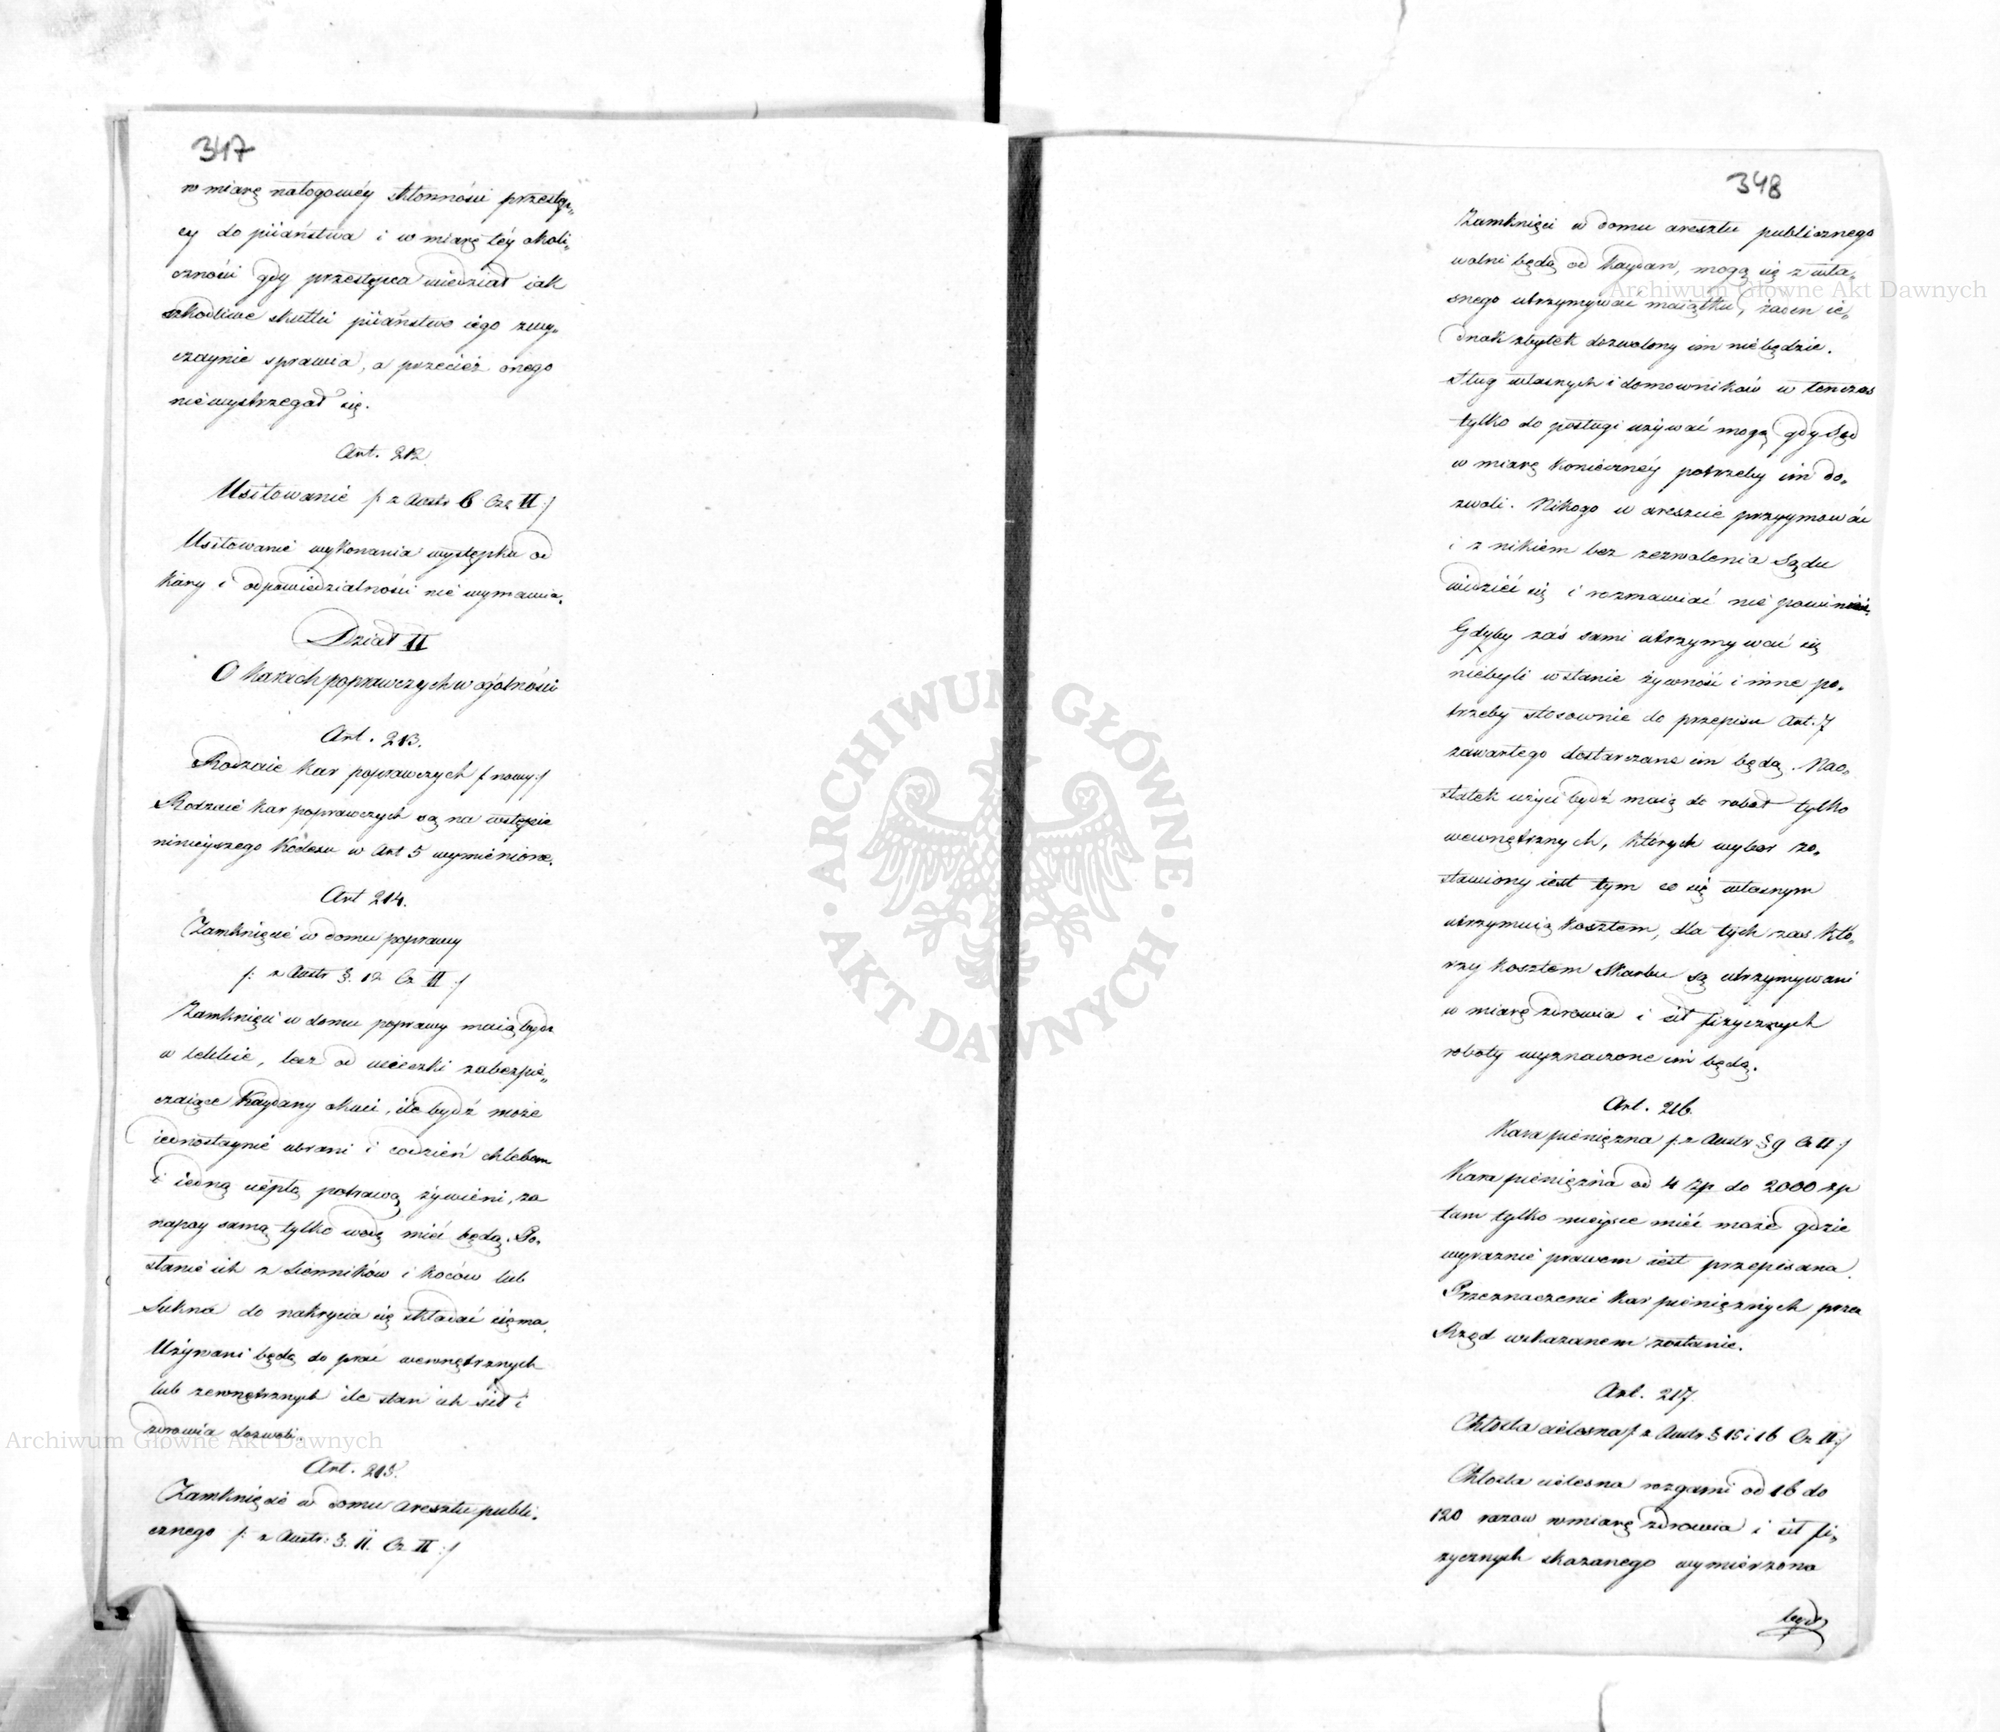 347
w miarę nałogowéy skłonności przestęp„
cy do piiaństwa i w miarę téy okoli„
czności gdy przestępca wiedział iak
szkodliwe skutki piiaństwo iego zwy„
czaynie sprawia, a przecież onego
niewystrzegał się.
Art. 212.
Usiłowanie /: z Austr 6 Czę II :/
Usiłowanie wykonania występku od
kary i odpowiedzialności nie wymawia.
Dział II
O karach poprawczych w ogólności
Art. 213.
Rodzaie kar poprawczych /: nowy :/
Rodzaie kar poprawczych są na wstępie
ninieyszego Kodexu w Art 5 wymienione.
Art 214.
Zamknięcie w domu poprawy
/: z Austr §. 12 Cz II :/
Zamknięci w domu poprawy maią bydź
w lekkie, lecz od ucieczki zabezpie„
czaiące kaydany okuci, ile bydź może
iednostaynie ubrani i codzień chlebem
i iedną ciepłą potrawą żywieni, za
napoy samą tylko wodę mieć będą. Po„
słanie ich z sienników i koców lub
sukna do nakrycia się składać się ma.
Używani będą do prac wewnętrznych
lub zewnętrznych ile stan ich sił i
zdrowia dozwoli.
Art. 215.
Zamknięcie w domu aresztu publi„
cznego /: z Austr: §. 11. Cz II :/
348
Zamknięci w domu aresztu publicznego
wolni będą od kaydan, mogą się z wła„
snego utrzymywać maiątku, żaden ie„
dnak zbytek dozwolony im niebędzie.
Sług własnych i domowników w tenczas
tylko do posługi używać mogą gdy Sąd
w miarę konieczney potrzeby im do„
zwoli. Nikogo w areszcie przyymować
i z nikiem bez zezwolenia Sądu
widzieć się i rozmawiać nie powinni.
Gdyby zaś sami utrzymywać się
niebyli wstanie żywność i inne po„
trzeby stosownie do przepisu Art. 7
zawartego dostarczane im będą. Nao„
statek użyci bydź maią do robot tylko
wewnętrznych, których wybor zo„
stawiony iest tym co się własnym
utrzymuią kosztem, dla tych zas któ„
rzy kosztem Skarbu są utrzymywani
w miarę zdrowia i sił fizycznych
roboty wyznaczone im będą.
Art. 216.
Kara pieniężna /: z Austr § 9 Cz II :/
Kara pieniężna od 4 zp. do 2000 zp
tam tylko mieysce mieć może gdzie
wyraznie prawem iest przepisana.
Przeznaczenie kar pieniężnych przez
Rząd wskazanem zostanie.
Art. 217.
Chłosta cielesna /: z Austr § 15 i 16 Cz II :/
Chłosta cielesna rozgami od 16 do
120 razow wmiarę zdrowia i sił fi„
zycznych skazanego wymierzona
bydź
Archiwum Główne Akt Dawnych
Archiwum Główne Akt Dawnych
ARCHIWUM GŁÓWNE · AKT DAWNYCH ·